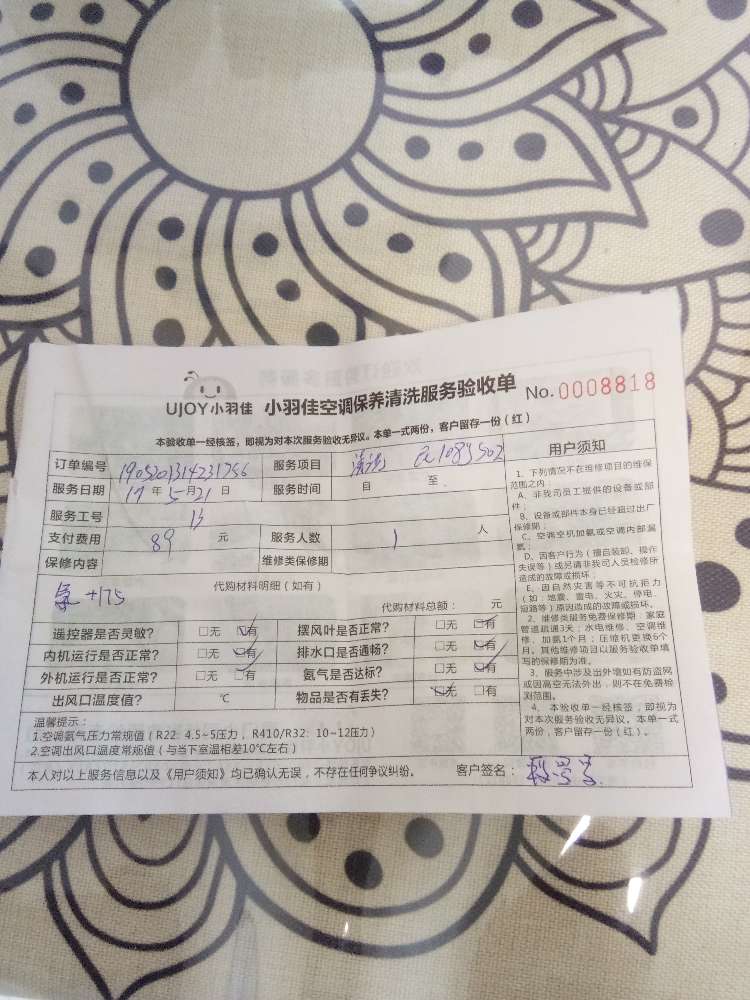 UJOY小羽佳 小羽佳空调保养清洗服务验收单 No. 0008818
本验收单一经核签，即视为对本次服务验收无异议。本单一式两份，客户留存一份（红）
订单编号 服务项目
服务日期 年 5月21日 服务时间 自 至
服务工号 13
支付费用 89 元 服务人数 1 人
保修内容 维修类保修期
+175 代购材料明细（如有）
代购材料总额： 元
遥控器是否灵敏? □无 □有 摆风叶是否正常? □无 □有
内机运行是否正常? □无 □有 排水口是否通畅? □无 □有
外机运行是否正常? □无 □有 氨气是否达标? □无 □有
出风口温度值? ℃ 物品是否有丢失? □无 □有
温馨提示：
1.空调氨气压力常规值（R22: 4.5~5压力，R410/R32: 10~12压力）
2.空调出风口温度常规值（与当下室温相差10℃左右）
本人对以上服务信息以及《用户须知》均已确认无误，不存在任何争议纠纷。 客户签名：
用户须知
1、下列情况不在维修项目的维保
范围之内：
A、非我司员工提供的设备或部
件；
B、设备或部件本身已经超过出厂
保修期；
C、空调空机加氨或空调内部漏
氨；
D、因客户行为（擅自装卸、操作
失误等）或另请非我司人员检修所
造成的故障或损坏；
E、因自然灾害等不可抗拒力
（如：地震、雷电、火灾、停电、
短路等）原因造成的故障或损坏。
2、维修类服务免费保修期：家庭
管道疏通3天；水电维修、空调维
修、加氨1个月；压缩机更换6个
月。其他维修项目以服务验收单填
写的保修期为准。
3、服务中涉及出外增如有防盗网
或因高空无法外出，则不在免费检
测范围。
4、本验收单一经核签，即视为
对本次服务验收无异议。本单一式
两份，客户留存一份（红）。